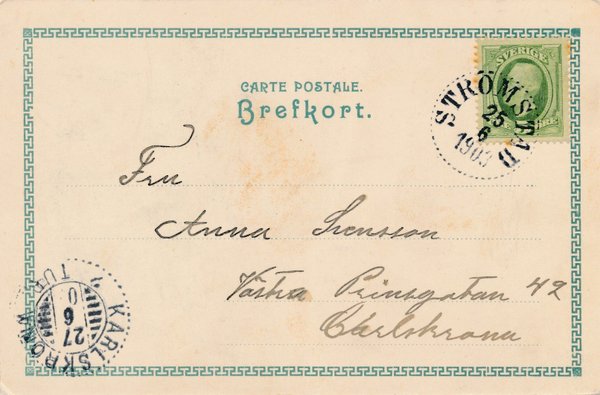 CARTE POSTALE.
Brefkort.
SVERIGE
STRÖMSTAD
25
6
1903
Fru
Anna Svensson
Västra Prinsgatan 42
Carlskrona
KARLSKRONA
1 TUR
10
27
6